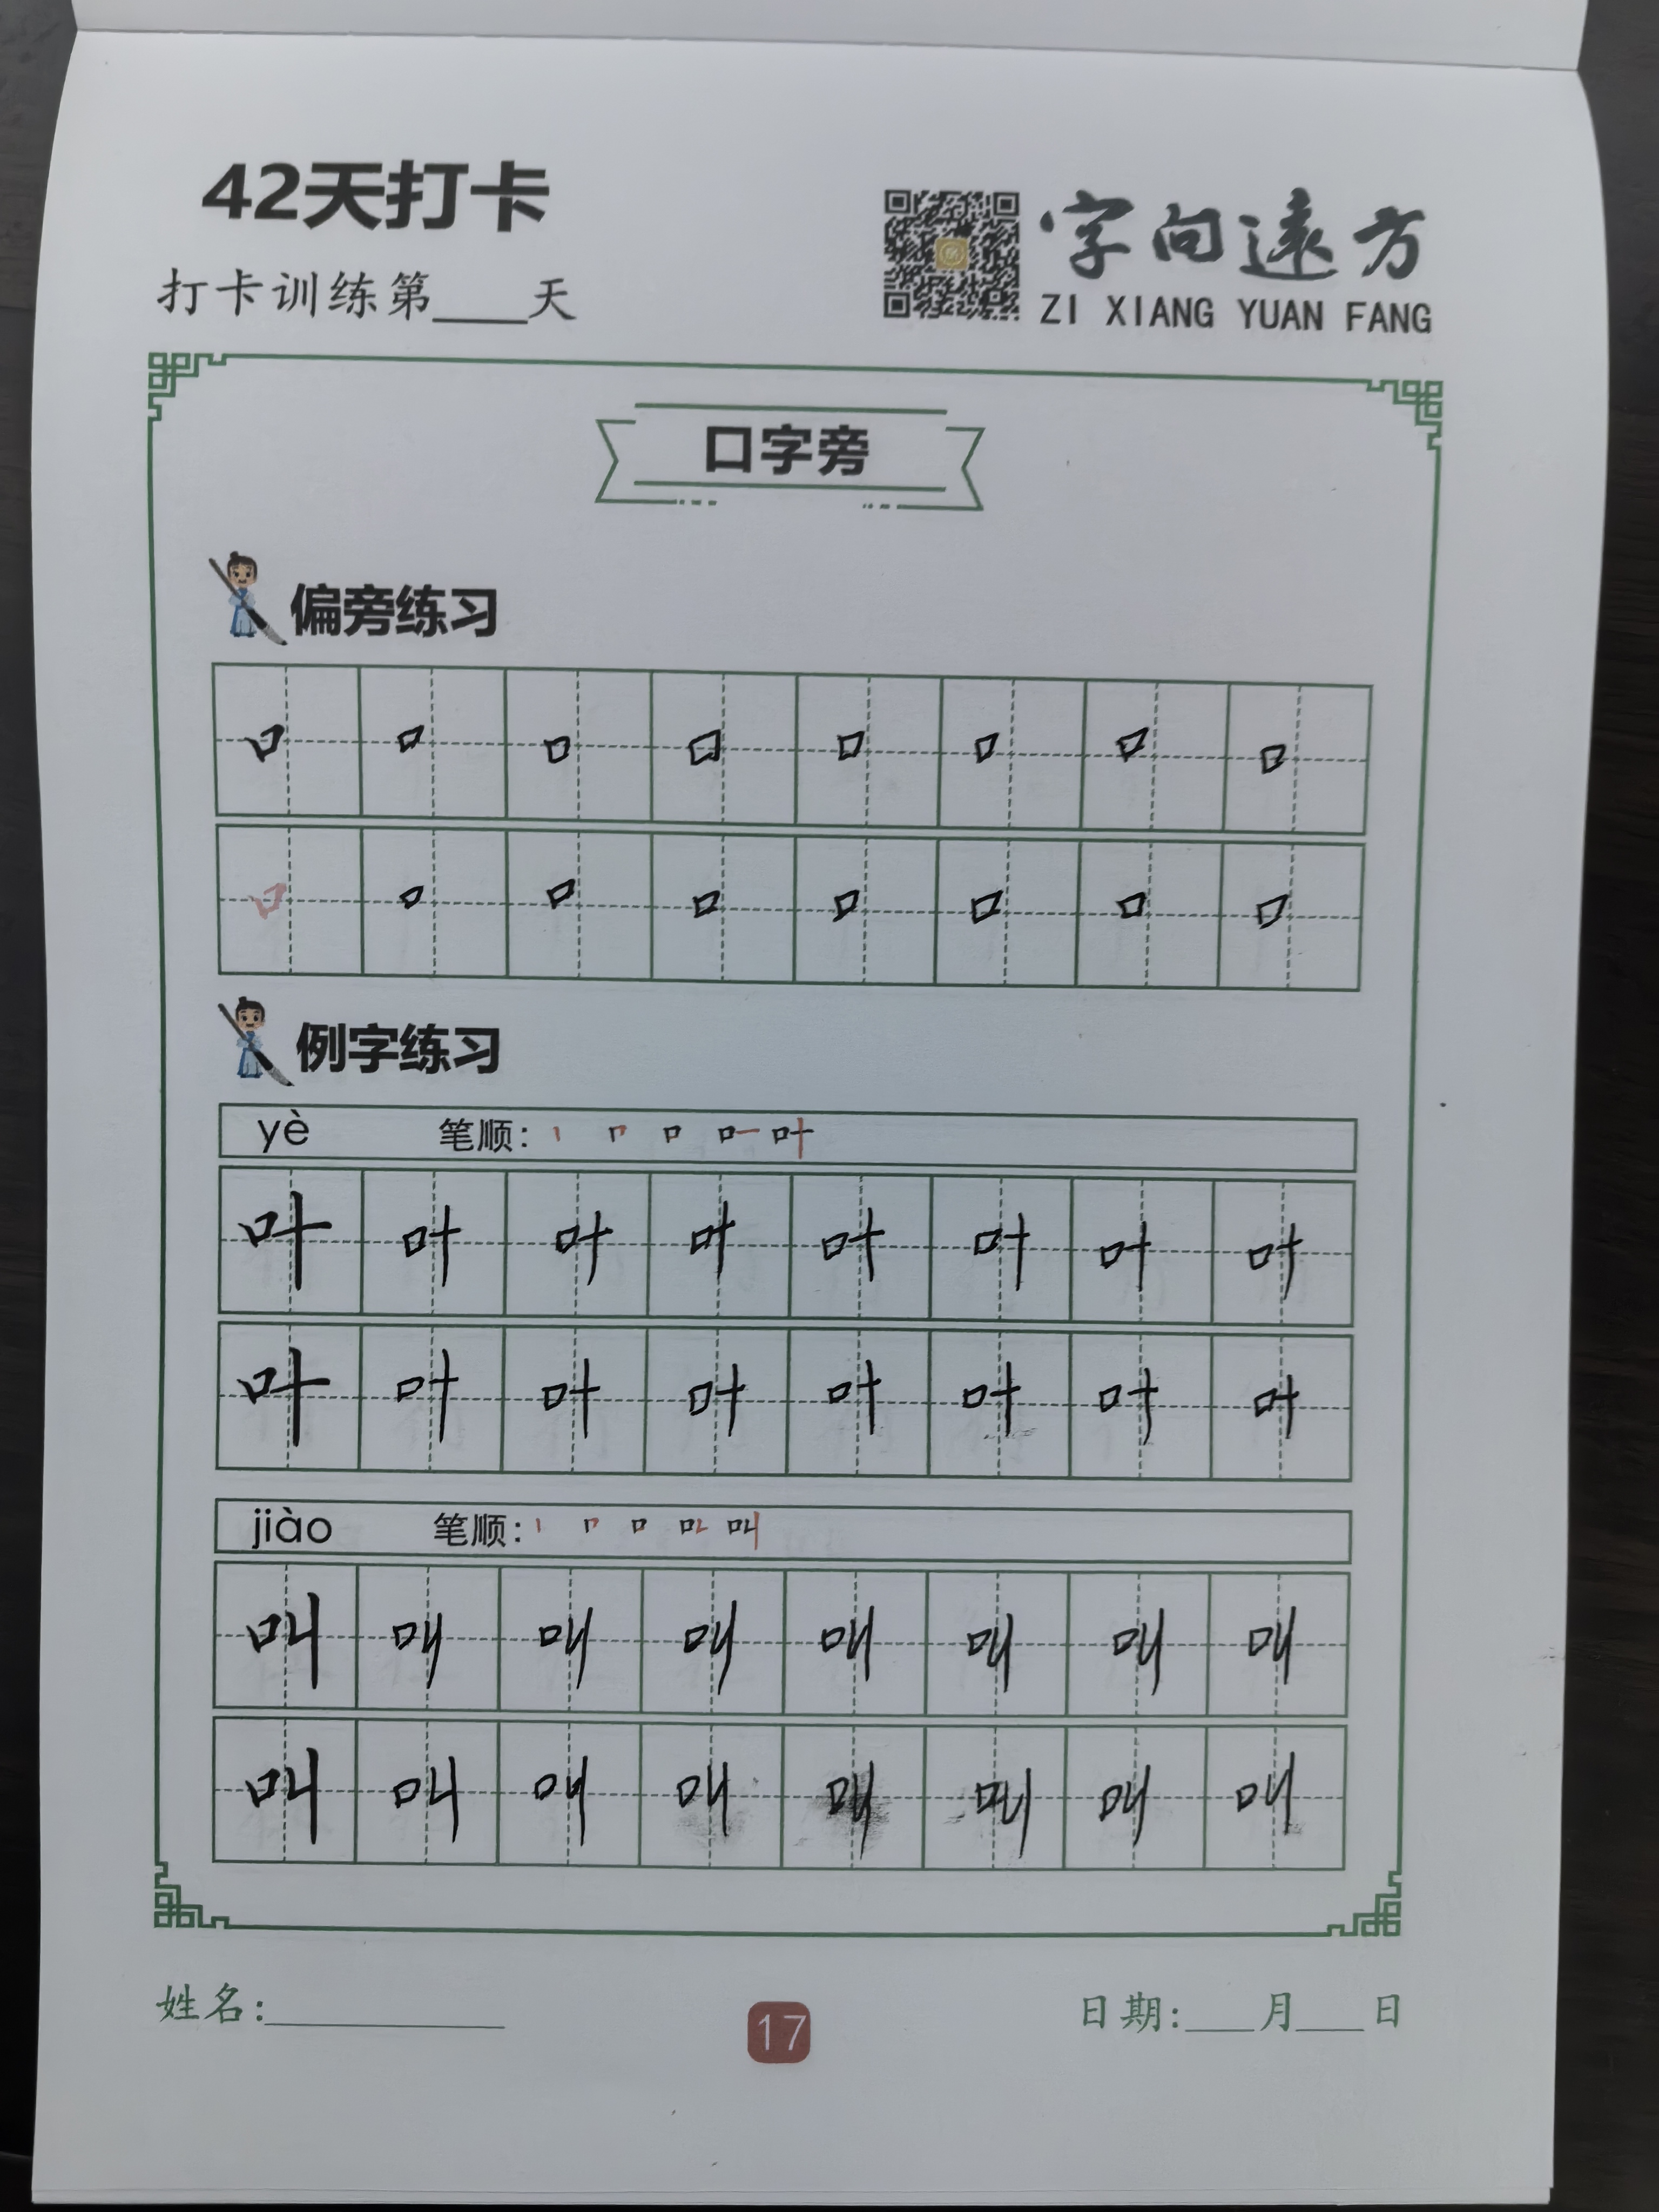 42天打卡
打卡训练第____天
字向遠方
ZI XIANG YUAN FANG
口字旁
偏旁练习
口 口 口 口 口 口 口 口
口 口 口 口 口 口 口 口
例字练习
yè 笔顺: 丨 𠃍 口 叶 叶
叶 叶 叶 叶 叶 叶 叶 叶
叶 叶 叶 叶 叶 叶 叶 叶
jiào 笔顺: 丨 𠃍 口 叫 叫
叫 叫 叫 叫 叫 叫 叫 叫
叫 叫 叫 叫 叫 叫 叫 叫
姓名:__________ 17 日期:___月___日